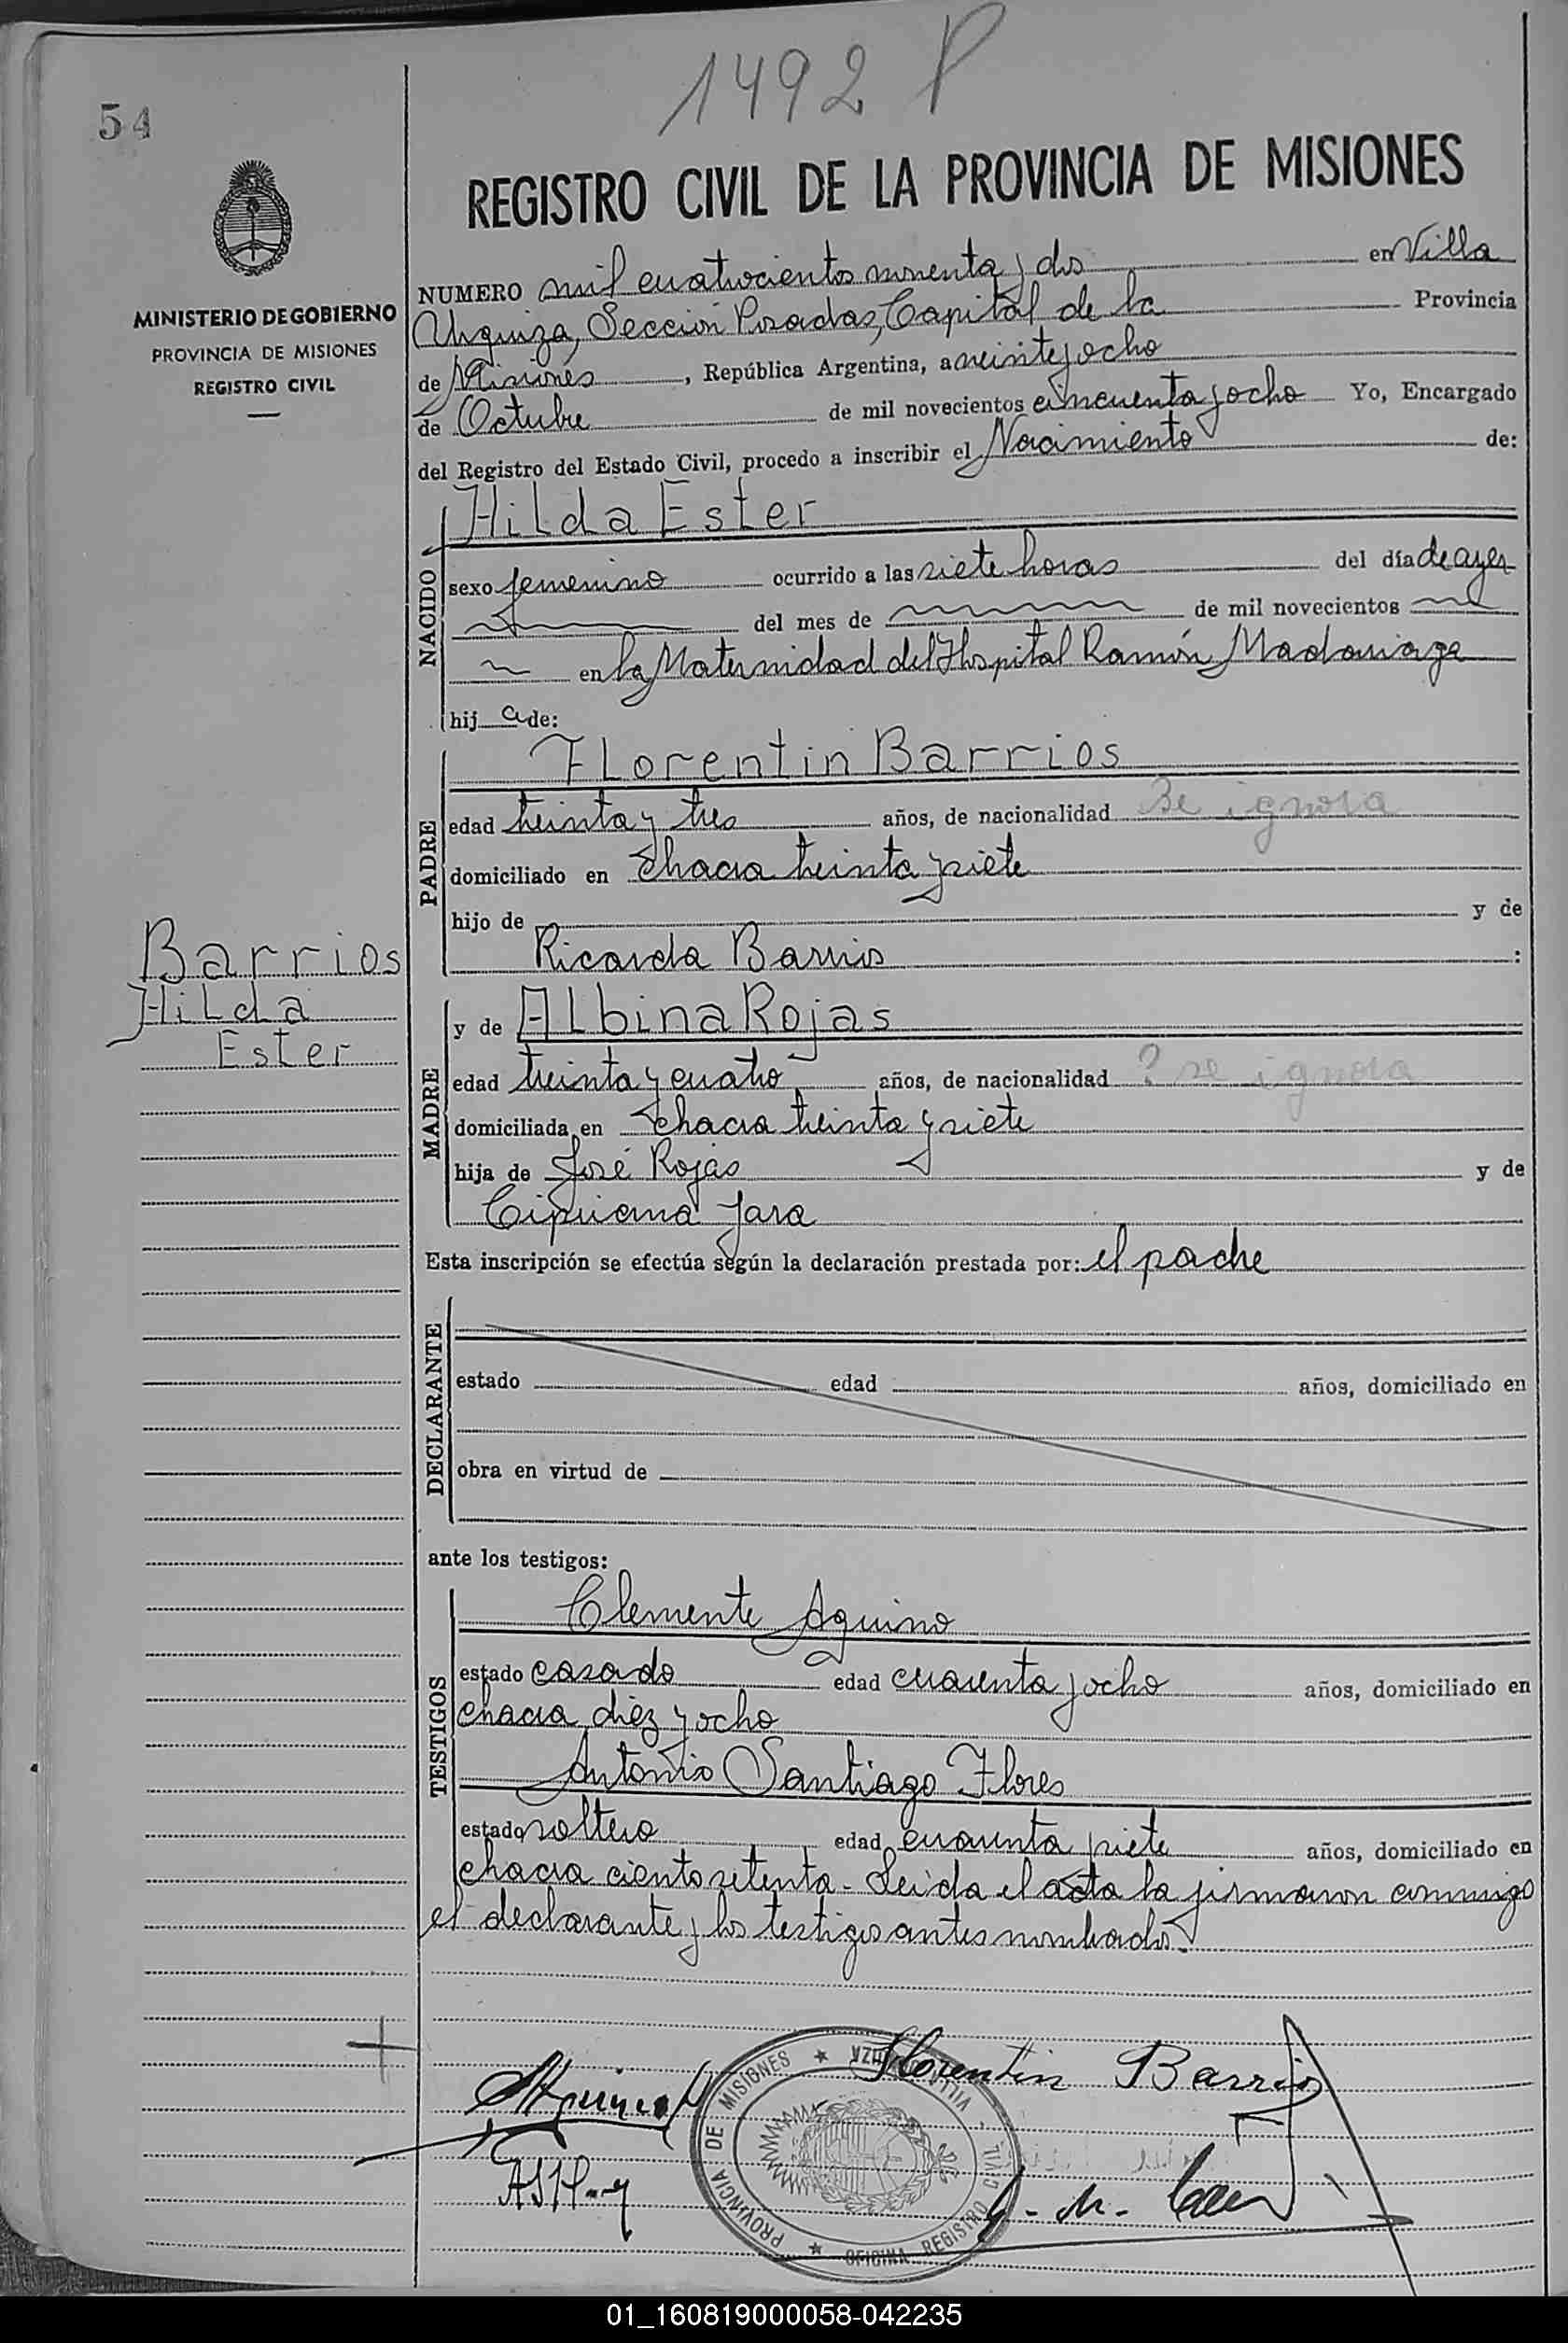 1492 P
54
REGISTRO CIVIL DE LA PROVINCIA DE MISIONES
MINISTERIO DE GOBIERNO
PROVINCIA DE MISIONES
REGISTRO CIVIL
NUMERO mil cuatrocientos noventa y dos en Villa
Urquiza, Sección Posadas, Capital de la Provincia
de Misiones, República Argentina, a veintiocho
de Octubre de mil novecientos cincuenta y ocho Yo, Encargado
del Registro del Estado Civil, procedo a inscribir el Nacimiento de:
NACIDO
Hilda Ester
sexo femenino ocurrido a las siete horas del día de ayer
del mes de de mil novecientos
en la Maternidad del Hospital Ramón Madariaga
hij a de:
PADRE
Florentin Barrios
edad treinta y tres años, de nacionalidad Se ignora
domiciliado en chacra treinta y siete
hijo de y de
Ricarda Barrios :
Barrios
Hilda
Ester
MADRE
y de Albina Rojas
edad treinta y cuatro años, de nacionalidad ? se ignora
domiciliada en chacra treinta y siete
hija de José Rojas y de
Cipriana Jara
Esta inscripción se efectúa según la declaración prestada por: el padre
DECLARANTE
estado edad años, domiciliado en
obra en virtud de
ante los testigos:
TESTIGOS
Clemente Aquino
estado casado edad cuarenta y ocho años, domiciliado en
chacra diez y ocho
Antonio Santiago Flores
estado soltero edad cuarenta y siete años, domiciliado en
chacra ciento setenta - Leída el acta la firmaron conmigo
el declarante y los testigos antes nombrados.
Florentin Barrios
PROVINCIA DE MISIONES ★ VILLA URQUIZA
OFICINA REGISTRO CIVIL ★
01_160819000058-042235